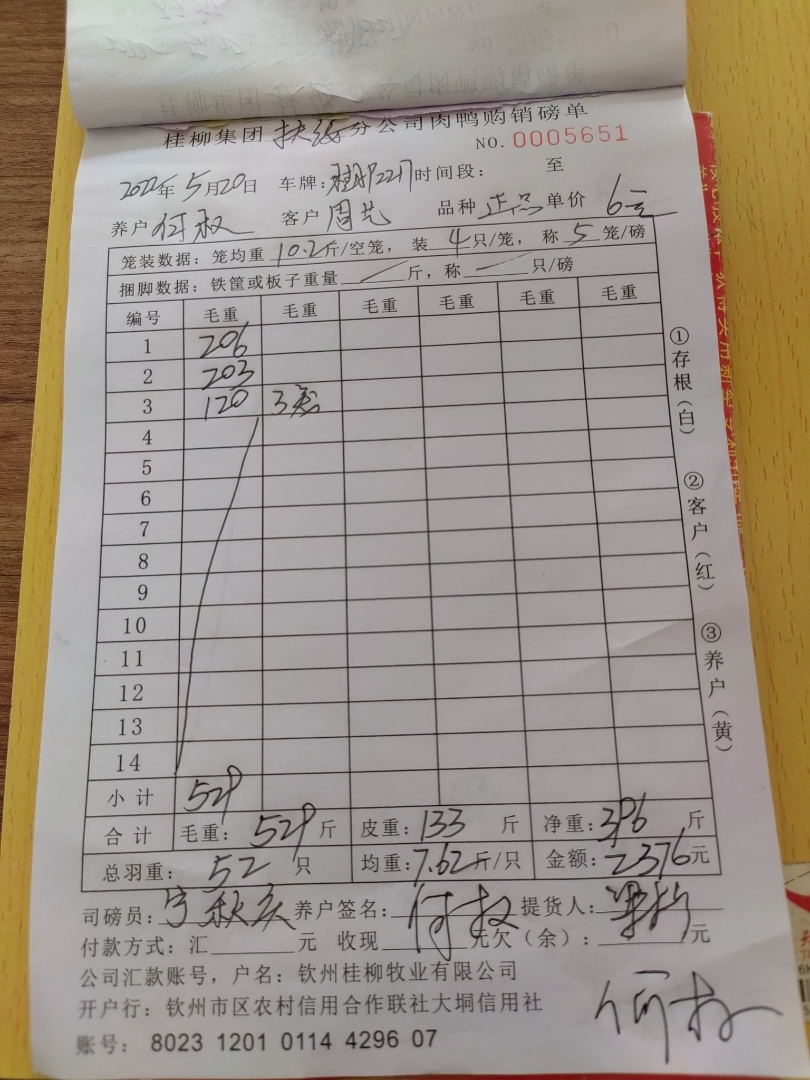 桂柳集团 扶绥 分公司肉鸭购销磅单
NO. 0005651
2022年5月20日 车牌: 时间段: 至
养户 何权 客户 周艺 品种 正品 单价 6元
笼装数据: 笼均重 10.2 斤/空笼, 装 4 只/笼, 称 5 笼/磅
捆脚数据: 铁筐或板子重量 / 斤, 称 一 只/磅
编号 毛重 毛重 毛重 毛重 毛重 毛重
1 206
2 203
3 120 3笼
4
5
6
7
8
9
10
11
12
13
14
小计 529
合计 毛重: 529 斤 皮重: 133 斤 净重: 396 斤
总羽重: 52 只 均重: 7.62 斤/只 金额: 2376 元
司磅员: 宁秋庆 养户签名: 何权 提货人:
付款方式: 汇 元 收现 元欠(余): 元
公司汇款账号, 户名: 钦州桂柳牧业有限公司
开户行: 钦州市区农村信用合作联社大垌信用社
账号: 8023 1201 0114 4296 07
何权
①存根(白) ②客户(红) ③养户(黄)